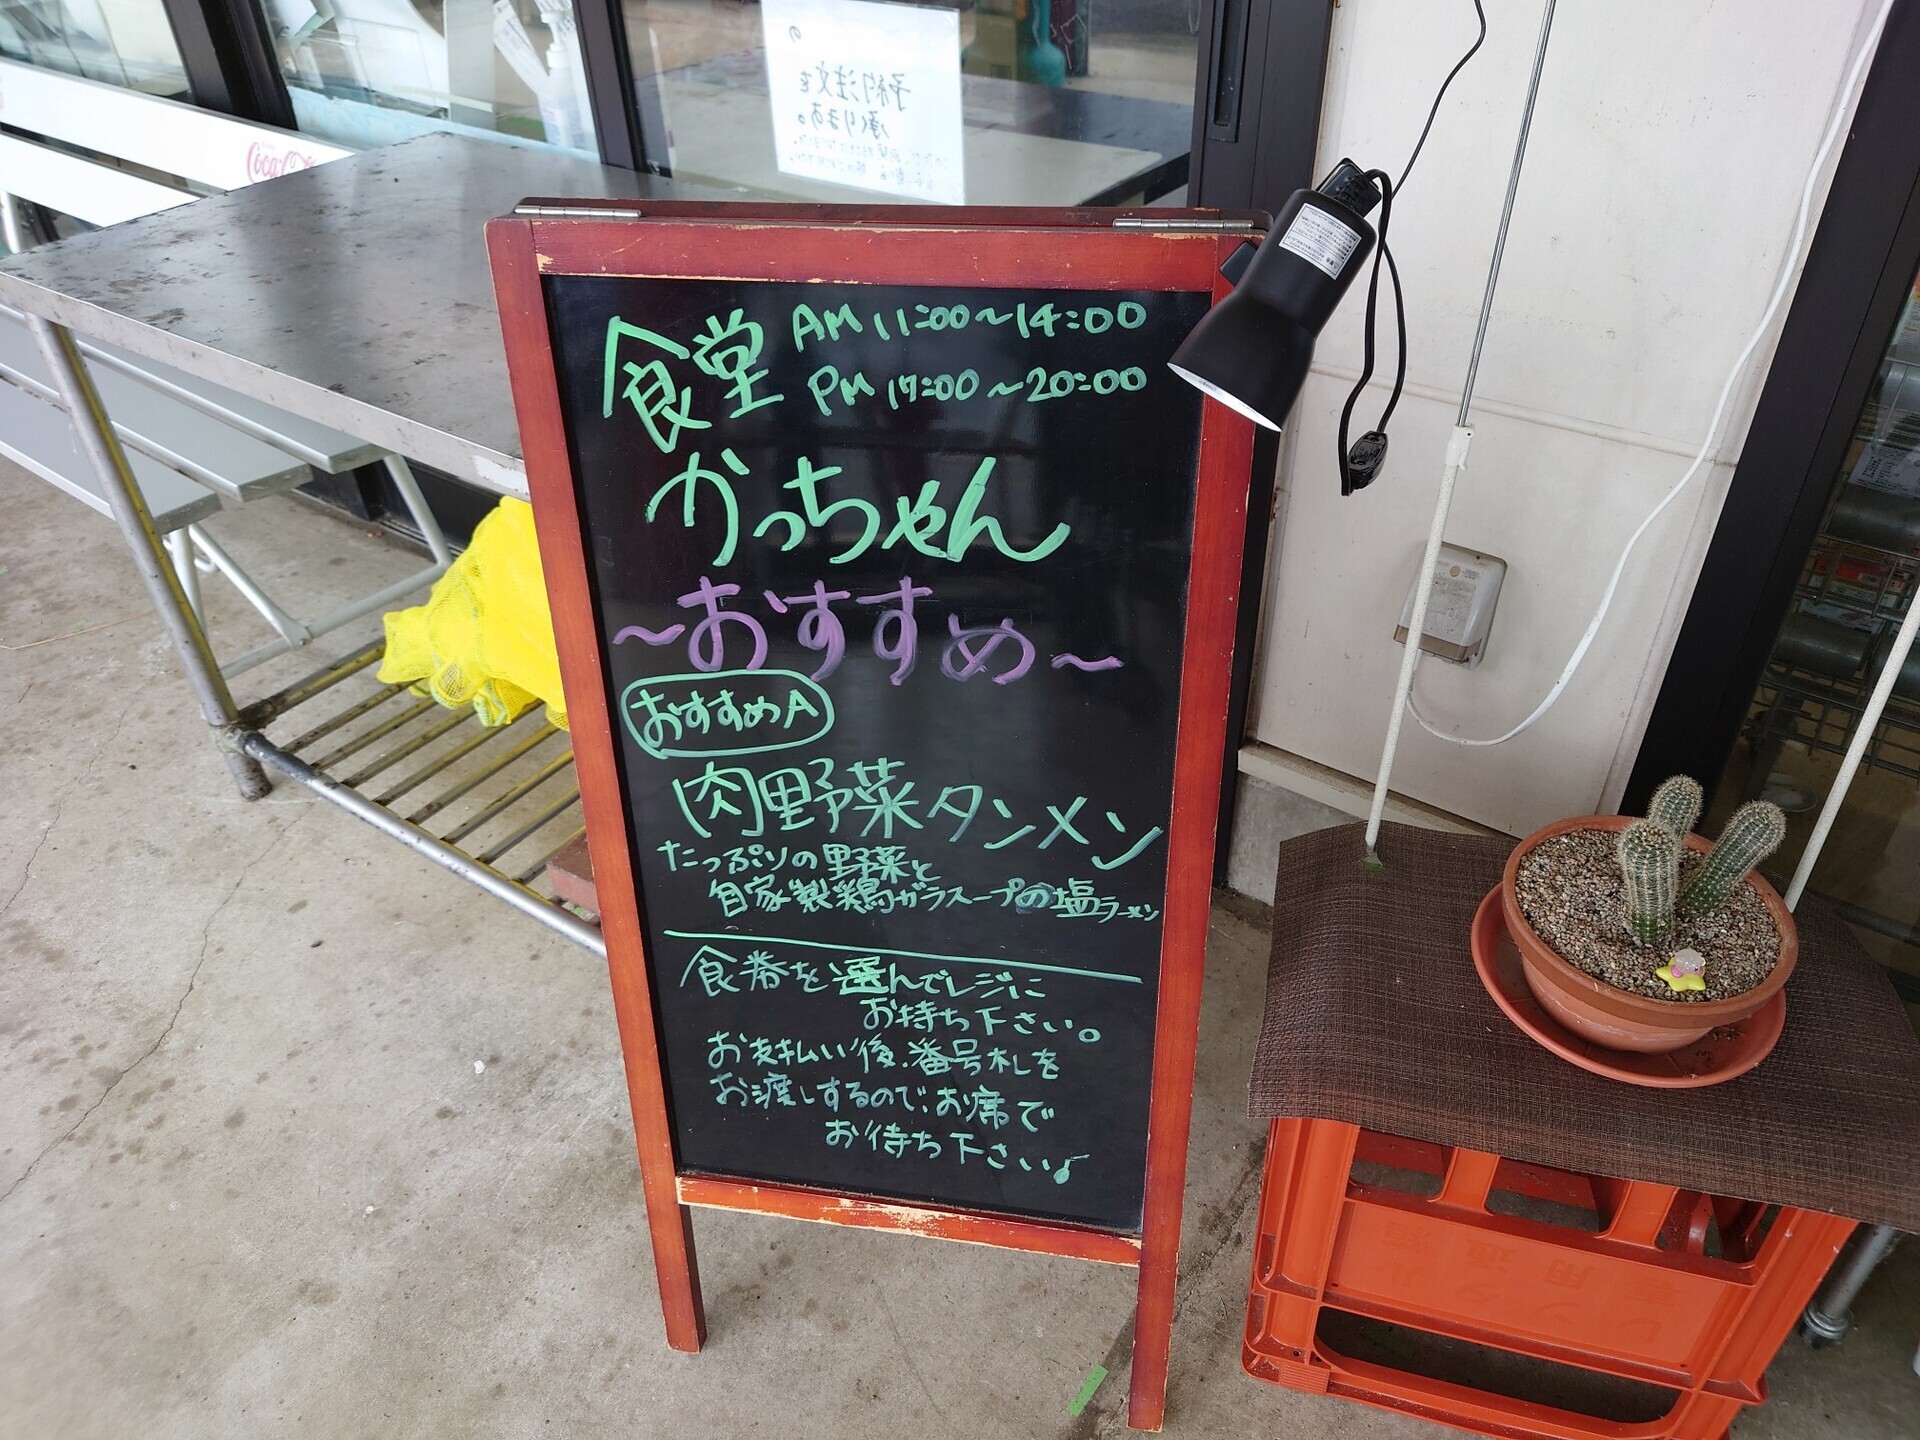 予約注文を
承ります。
Coca-Co
食堂
AM 11:00〜14:00
PM 17:00〜20:00
かっちゃん
〜おすすめ〜
おすすめA
肉野菜タンメン
たっぷりの野菜と
自家製鶏ガラスープの塩ラーメン
食券を選んでレジに
お持ち下さい。
お支払い後、番号札を
お渡しするので、お席で
お待ち下さい♪